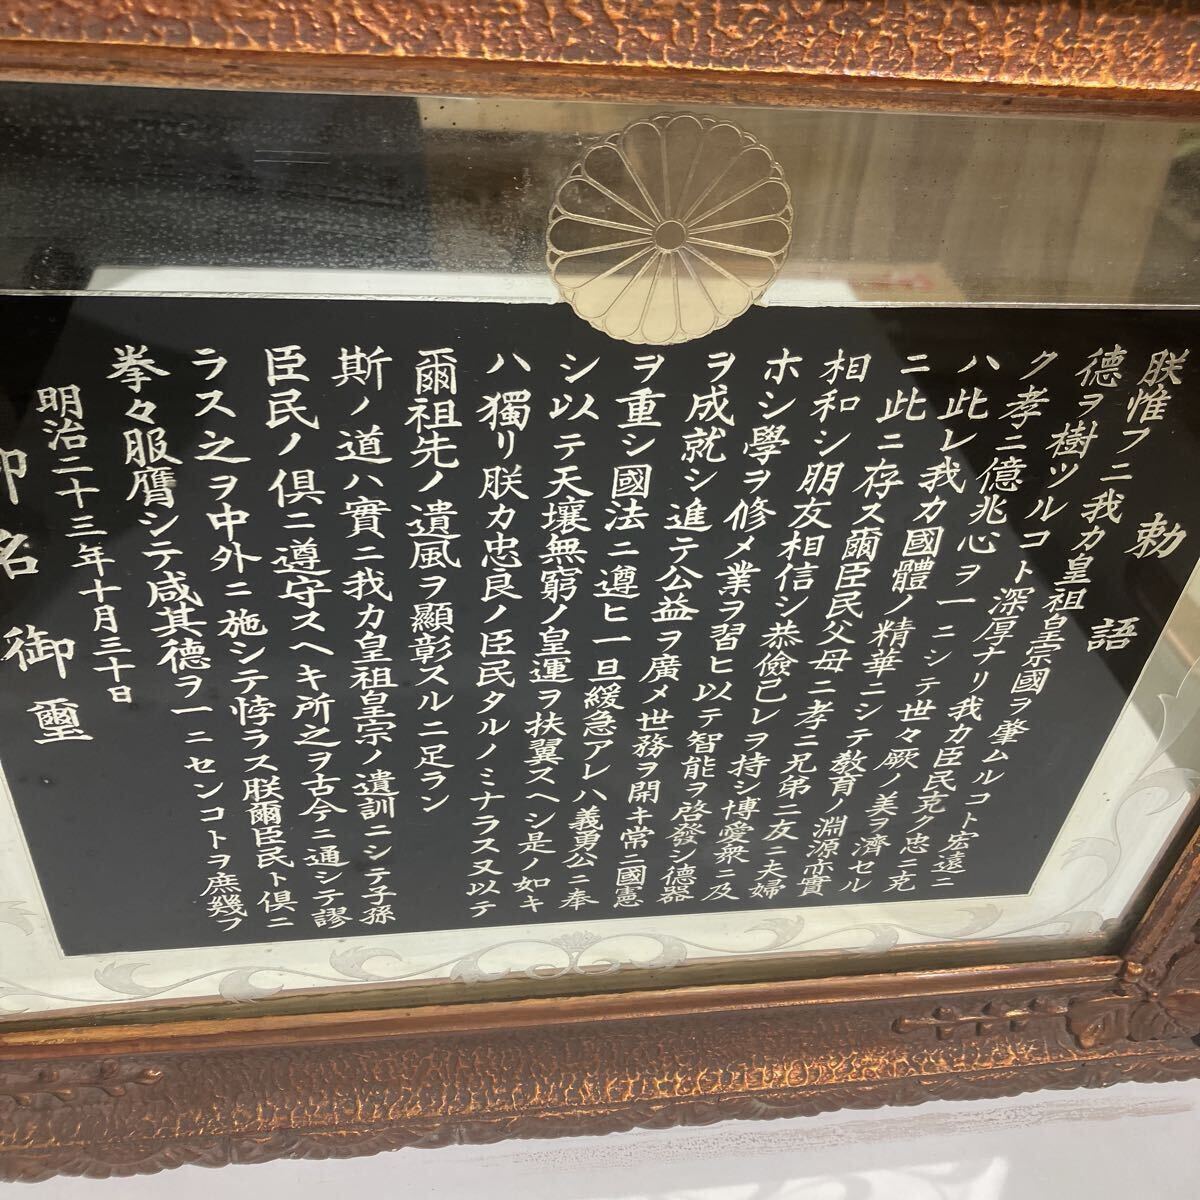 勅語
朕惟フニ我カ皇祖皇宗國ヲ肇ムルコト宏遠ニ
德ヲ樹ツルコト深厚ナリ我カ臣民克ク忠ニ克
ク孝ニ億兆心ヲ一ニシテ世々厥ノ美ヲ濟セル
ハ此レ我カ國體ノ精華ニシテ敎育ノ淵源亦實
ニ此ニ存ス爾臣民父母ニ孝ニ兄弟ニ友ニ夫婦
相和シ朋友相信シ恭儉己レヲ持シ博愛衆ニ及
ホシ學ヲ修メ業ヲ習ヒ以テ智能ヲ啓發シ德器
ヲ成就シ進テ公益ヲ廣メ世務ヲ開キ常ニ國憲
ヲ重シ國法ニ遵ヒ一旦緩急アレハ義勇公ニ奉
シ以テ天壤無窮ノ皇運ヲ扶翼スヘシ是ノ如キ
ハ獨リ朕カ忠良ノ臣民タルノミナラス又以テ
爾祖先ノ遺風ヲ顯彰スルニ足ラン
斯ノ道ハ實ニ我カ皇祖皇宗ノ遺訓ニシテ子孫
臣民ノ倶ニ遵守スヘキ所之ヲ古今ニ通シテ謬
ラス之ヲ中外ニ施シテ悖ラス朕爾臣民ト倶ニ
拳々服膺シテ咸其德ヲ一ニセンコトヲ庶幾フ
明治二十三年十月三十日
御名御璽